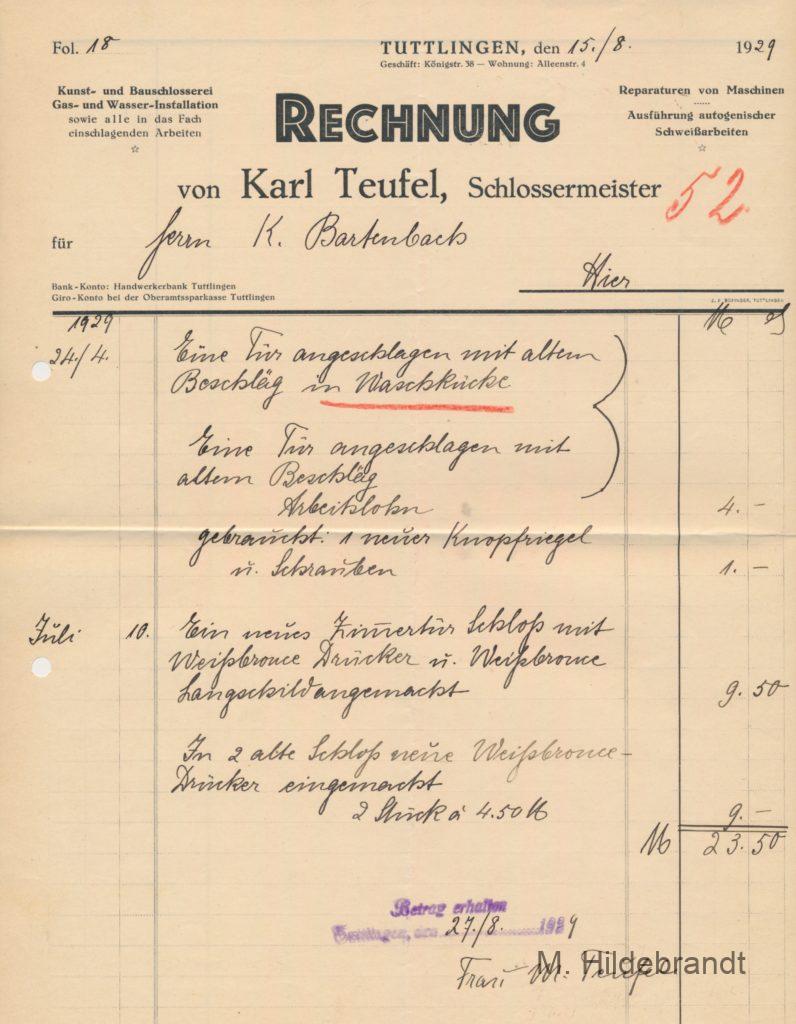 Fol. 18
TUTTLINGEN, den 15./8. 1929
Geschäft: Königstr. 38 — Wohnung: Alleenstr. 4
Kunst- und Bauschlosserei
Gas- und Wasser-Installation
sowie alle in das Fach
einschlagenden Arbeiten
RECHNUNG
Reparaturen von Maschinen
Ausführung autogenischer
Schweißarbeiten
von Karl Teufel, Schlossermeister
52
für Herrn K. Bartenbach
Hier
Bank-Konto: Handwerkerbank Tuttlingen
Giro-Konto bei der Oberamtssparkasse Tuttlingen
TUTTLINGEN
1929 M
24./4. Eine Tür angeschlagen mit altem
Beschläg in Waschküche
Eine Tür angeschlagen mit
altem Beschläg
Arbeitslohn 4.–
gebraucht: 1 neuer Knopfriegel
u. Schrauben 1.–
Juli 10. Ein neues Zimertür Schloß mit
Weißbronce Drücker u. Weißbronce
Langschild angemacht 9.50
In 2 alte Schloß neue Weißbronce-
Drücker eingemacht
2 Stück á 4.50 M 9.–
M 23.50
Betrag erhalten
Tuttlingen, den 27./8. 1929
M. Hildebrandt
Frau M. Teufel